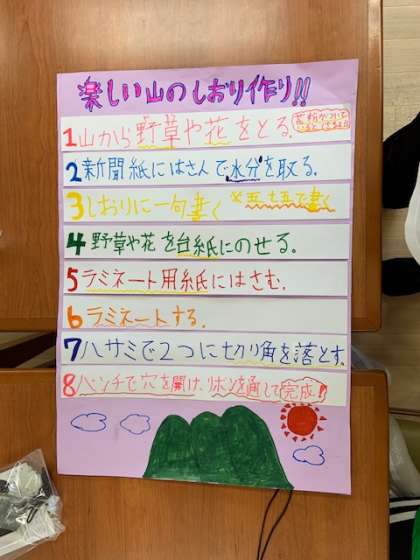 楽しい山のしおり作り!!
1山から野草や花をとる.
2新聞紙にはさんで水分を取る.
3しおりに一句書く ※五・七・五で書く
4野草や花を台紙にのせる.
5ラミネート用紙にはさむ.
6ラミネートする.
7ハサミで2つに切り角を落とす.
8パンチで穴を開け、リボンを通して完成!